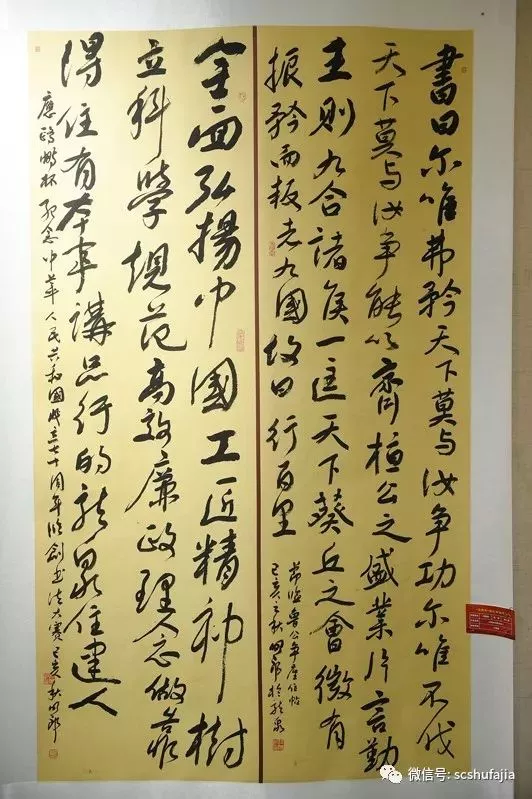 書曰尔唯弗矜天下莫与汝争功尔唯不伐
天下莫与汝争能以齊桓公之盛業片言勤
王則九合諸侯一匡天下葵丘之會微有
振矜而叛者九國故曰行百里
临鲁公争座位帖
己亥之秋於龙泉
全面弘揚中國工匠精神樹
立科學規范高效廉政理念做靠
得住有本事講品行的龙泉住建人
應鸥鹏杯纪念中華人民共和國成立七十周年临创书法大赛己亥秋
微信号: scshufajia